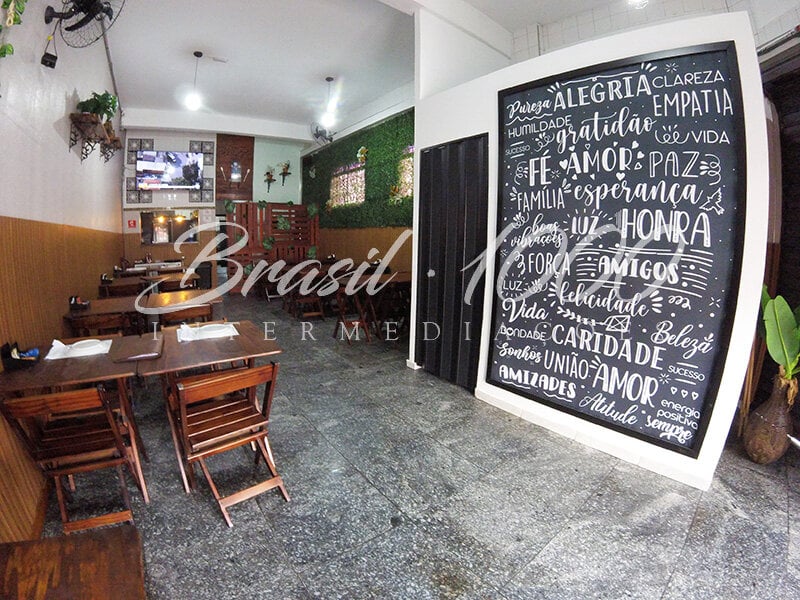 Pureza ALEGRIA CLAREZA
HUMILDADE EMPATIA
SUCESSO gratidão fé VIDA
FÉ AMOR PAZ
FAMÍLIA esperança
boas vibrações LUZ HONRA
FORÇA AMIGOS
LUZ felicidade
Vida
BONDADE CARIDADE Beleza
Sonhos UNIÃO AMOR SUCESSO
AMIZADES Atitude energia positiva
sempre
Brasil · 1000
INTERMEDI